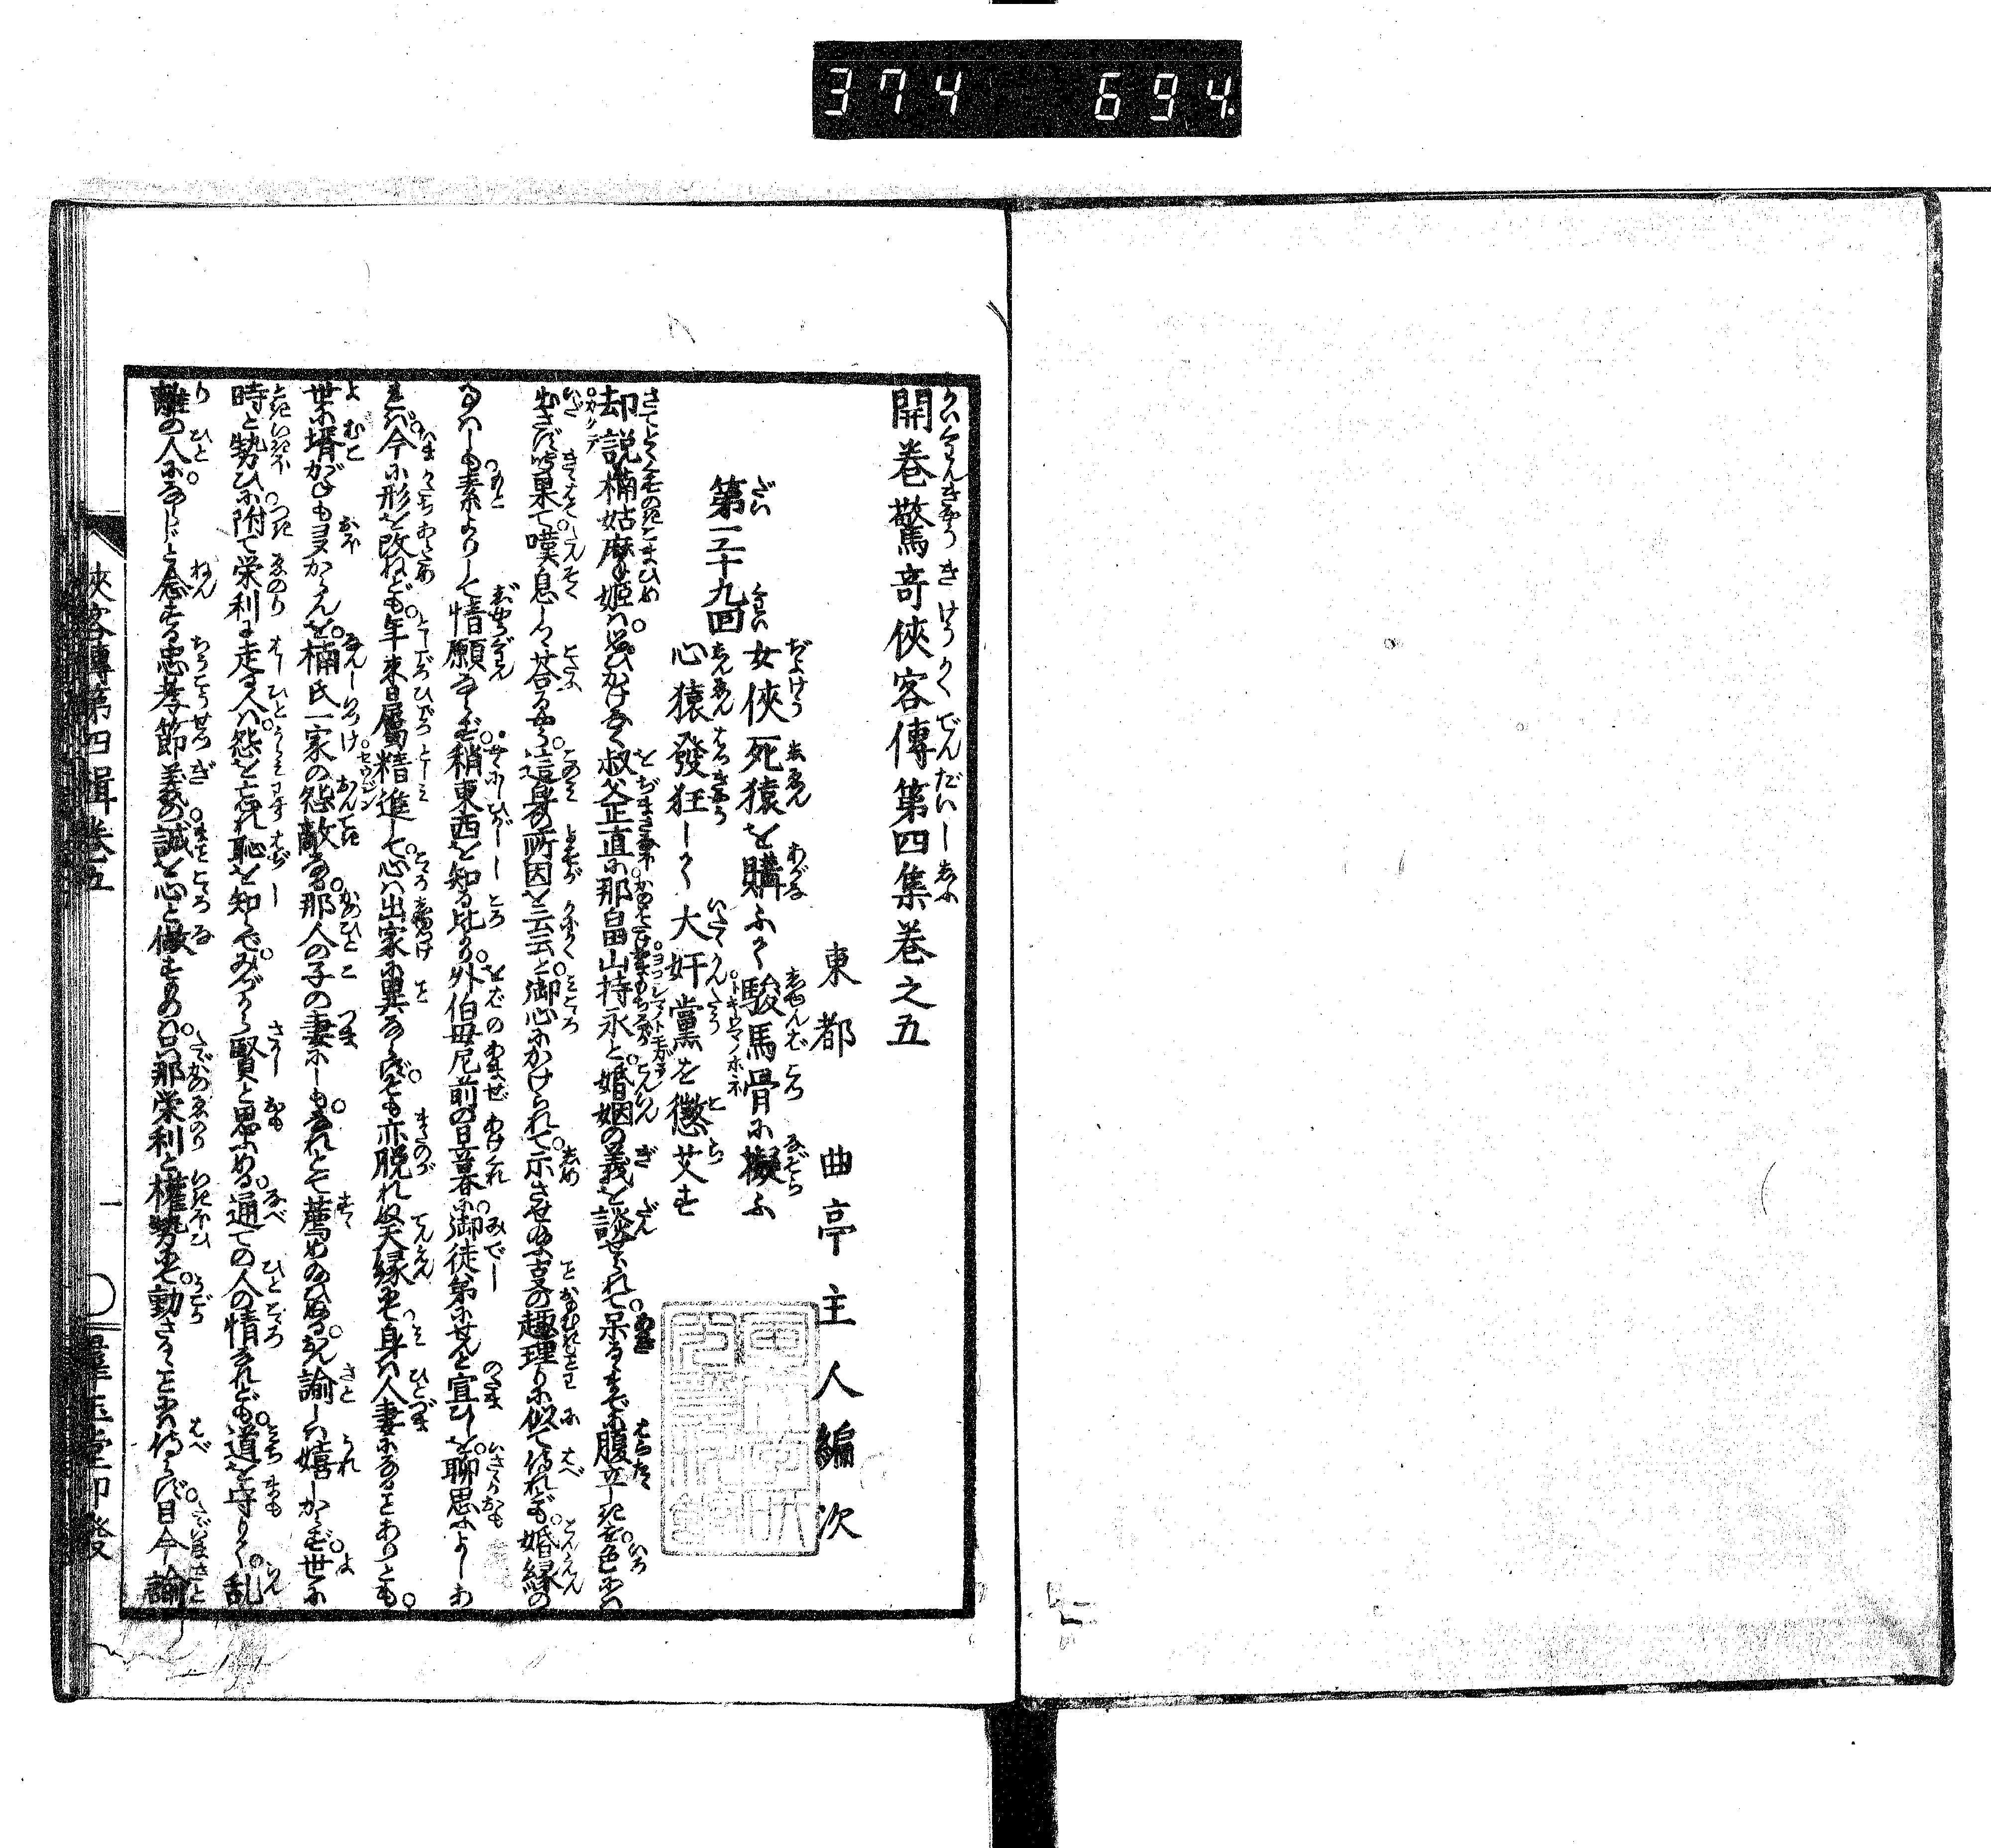 374 694
開巻驚竒俠客傳第四集巻之五
東都 曲亭主人編次
第三十九回
女俠死猿を購ふて駿馬骨に擬ふ
心猿發狂して大奸黨を懲艾す
却説楠姑摩姫は思ひかけなく叔父正直に那畠山持永と婚姻の義を談せられて呆るゝまでに腹立しきを色にハ
出さず聞果て嘆息しつゝ荅るやう這身の所因を云云と御心にかけられて示させ給ふ言の趣理りに似て侍れども婚縁の
事ハしも素よりして情願ならず稍東西を知る比より外伯母尼前の旦暮に御徒弟にせんと宣ひしを聊思ふよしあ
れバ今に形を改ねども年来日属精進して心ハ出家に異ならずとも亦脱れぬ天縁にて身ハ人妻になることありとも
世に壻がねも多からんを楠氏一家の怨敵なる那人の子の妻にしもなれとて薦め給ひぬる諭しハ嬉しからず世に
時と勢ひに附て栄利に走る人ハ怨を忘れ恥を知らでみづから賢と思ふめる通ての人の情なれども道を守りて乱
離の人にならじと念ずる忠孝節義の誠を心と做すものハ那栄利と權勢にて動さるゝことハ侍らず目今諭
俠客傳第四輯巻五
一